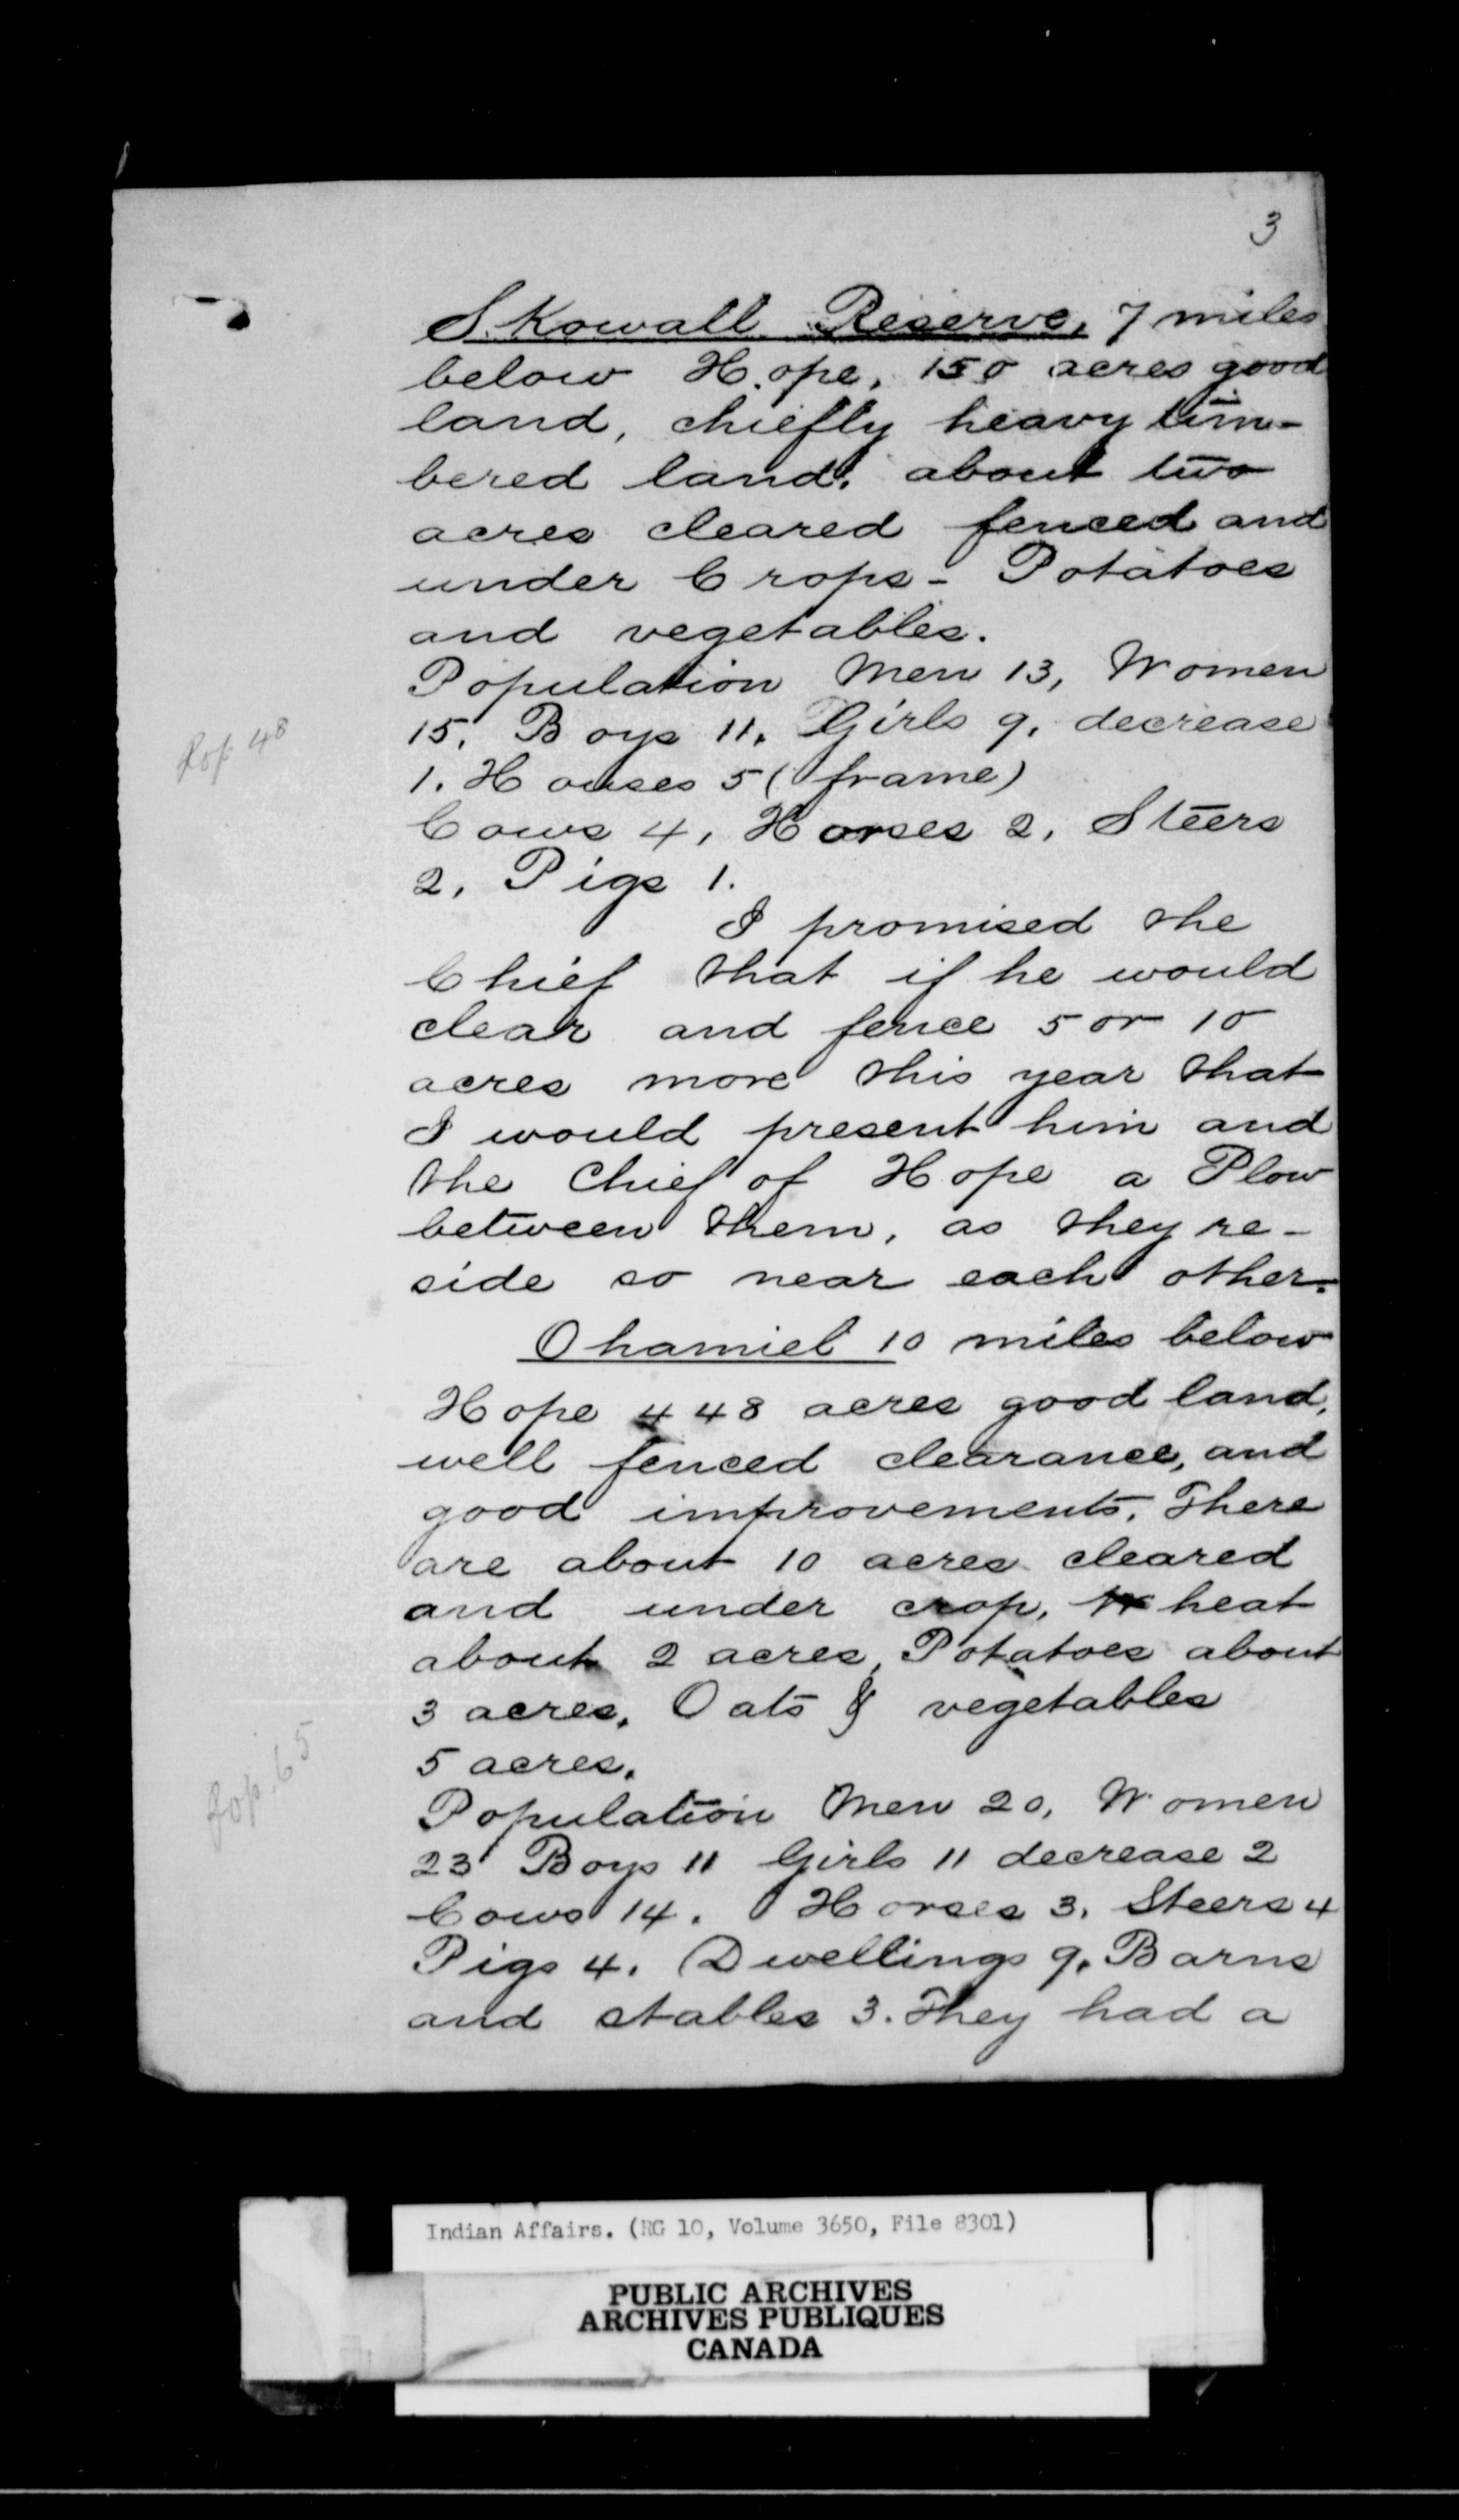 3
S.Kowall Reserve, 7 miles
below Hope, 150 acres good
land, chiefly heavy tim-
bered land, about two
acres cleared fenced and
under Crops - Potatoes
and vegetables.
Population Men 13, Women
15, Boys 11, Girls 9, decrease
Pop 48
1. Houses 5 (frame)
Cows 4, Horses 2, Steers
2, Pigs 1.
I promised the
Chief that if he would
clear and fence 5 or 10
acres more this year that
I would present him and
the Chief of Hope a Plow
between them, as they re-
side so near each other.
Ohamiel 10 miles below
Hope 448 acres good land,
well fenced clearance, and
good improvements. There
are about 10 acres cleared
and under crop, Wheat
about 2 acres, Potatoes about
3 acres, Oats & vegetables
5 acres.
Pop. 65
Population Men 20, Women
23 Boys 11 Girls 11 decrease 2
Cows 14. Horses 3. Steers 4
Pigs 4. Dwellings 9. Barns
and stables 3. They had a
Indian Affairs. (RG 10, Volume 3650, File 8301)
PUBLIC ARCHIVES
ARCHIVES PUBLIQUES
CANADA